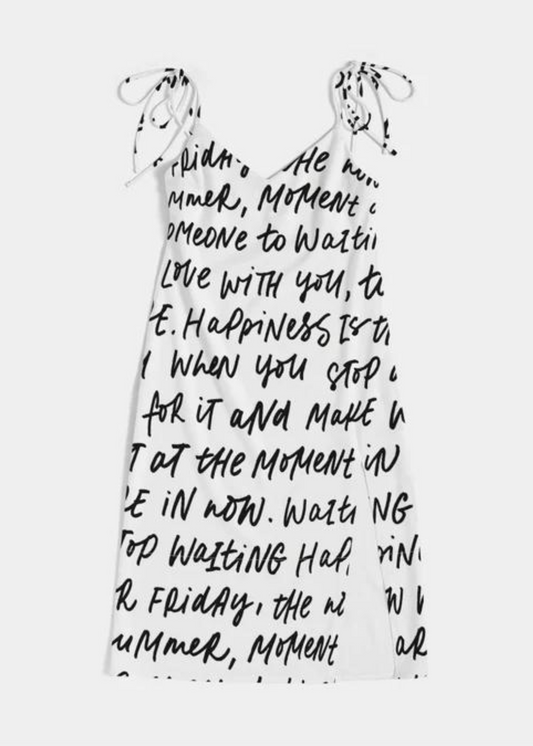 FRiDAY THE nOW
ummer, MOMENT
OMEONE to WaItiN
LOVE WiTH YOU, to
E. HaPPiNESS IS th
WHEN YOU STOP
for iT aNd MakE
T aT tHE MOMENT iN
E iN nOW. WaItiNG
TOP WaItiNG HaPPiN
R FRiDAY, tHE nOW
uMMeR, MOMENT ar